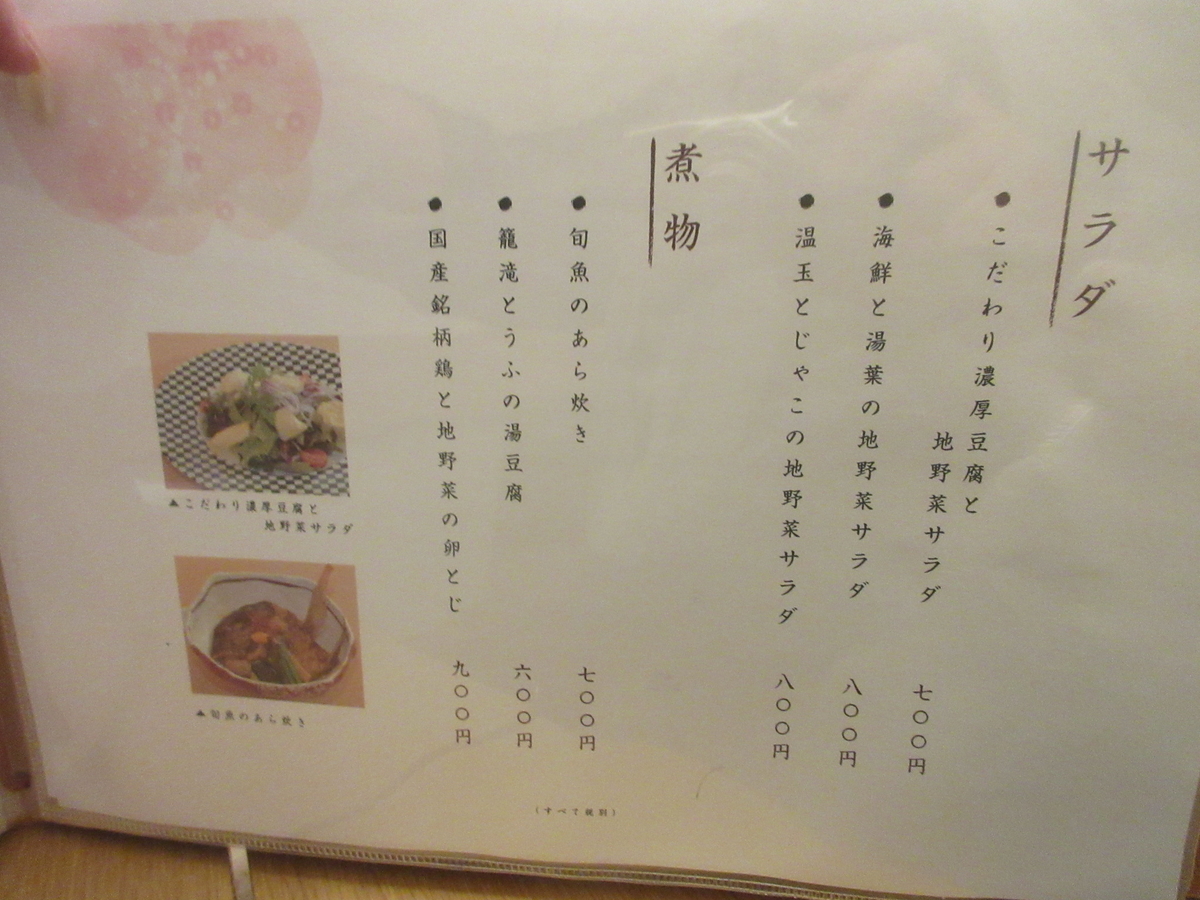 サラダ
● こだわり濃厚豆腐と
地野菜サラダ 七〇〇円
● 海鮮と湯葉の地野菜サラダ 八〇〇円
● 温玉とじゃこの地野菜サラダ 八〇〇円
煮物
● 旬魚のあら炊き 七〇〇円
● 籠滝とうふの湯豆腐 六〇〇円
● 国産銘柄鶏と地野菜の卵とじ 九〇〇円
▲こだわり濃厚豆腐と
地野菜サラダ
▲旬魚のあら炊き
(すべて税別)